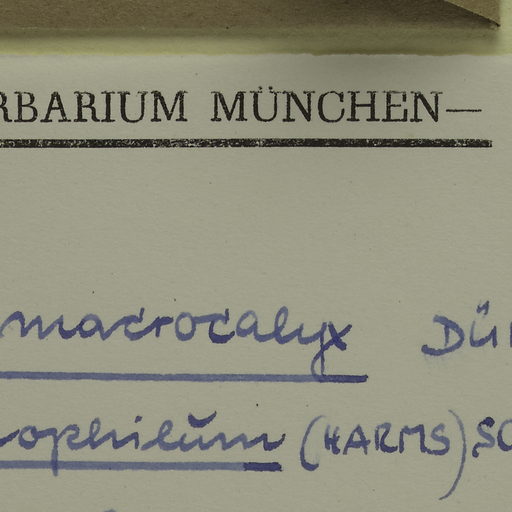 RBARIUM MÜNCHEN—
macrocalyx DÜ
ophilum (HARMS) SC